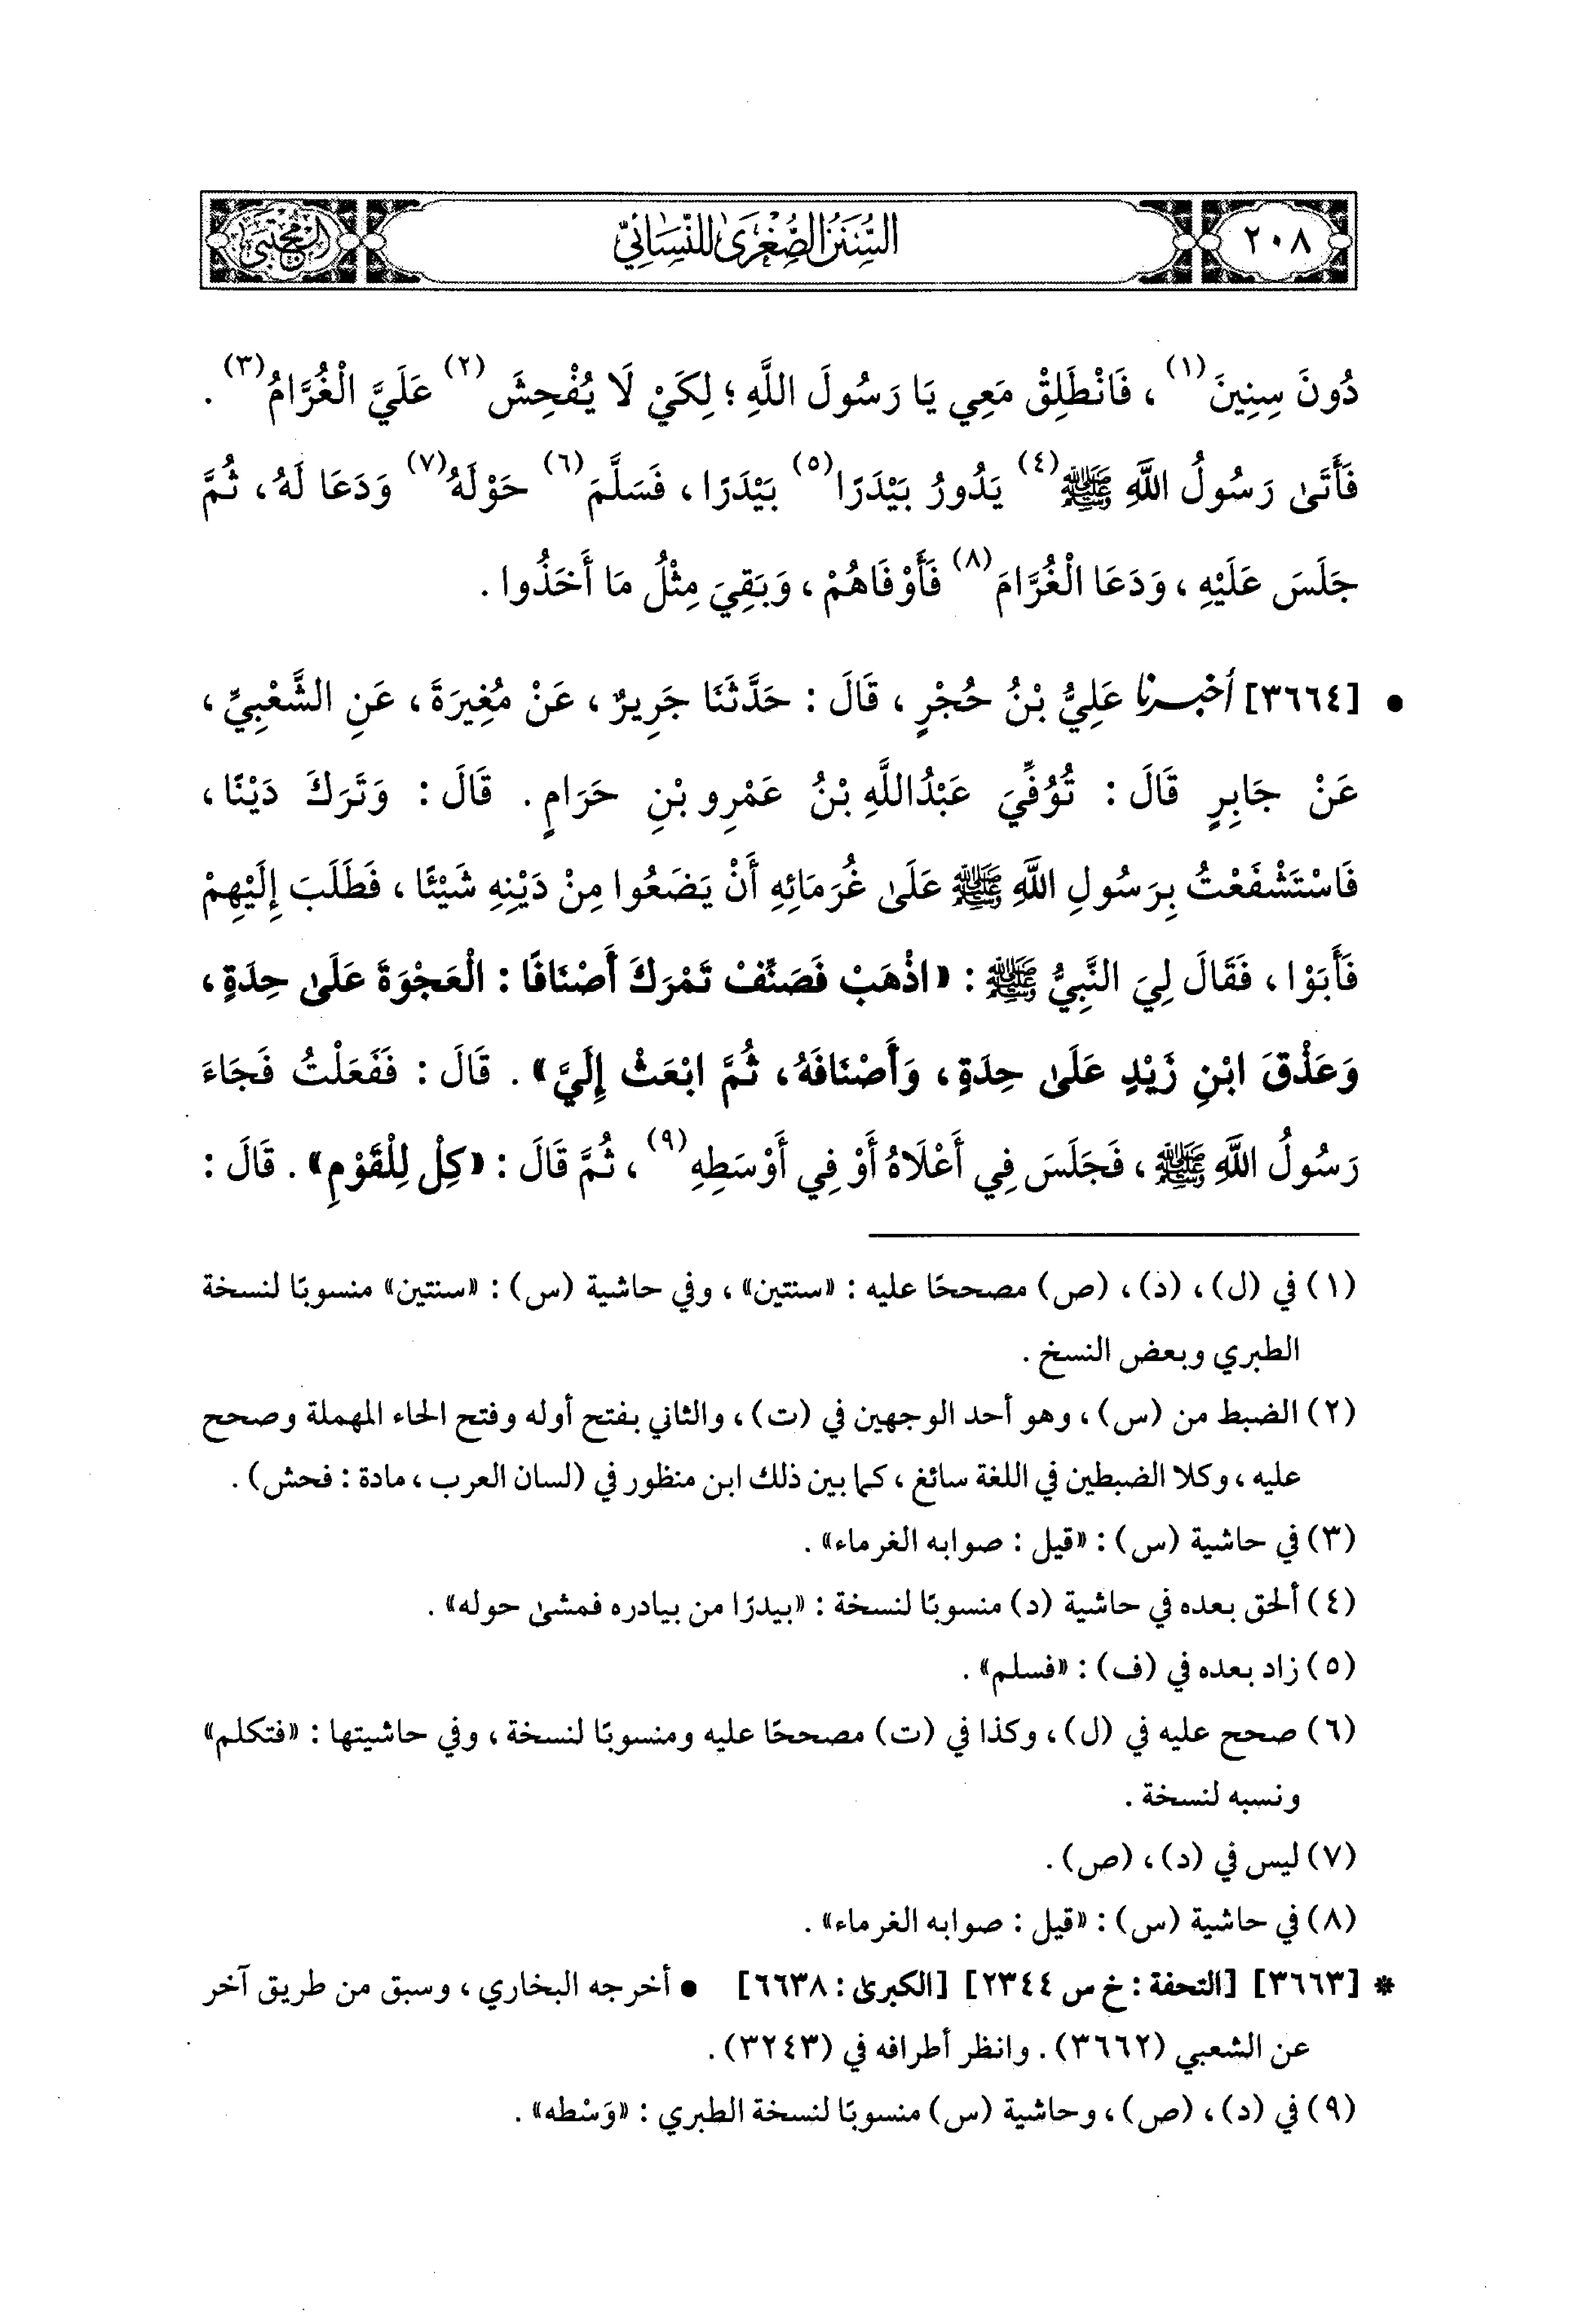 ٢٠٨
السُّنَنُ الصُّغْرَىٰ لِلنَّسَائِيِّ
المجتبى
دُونَ سِنِينَ(١)، فَانْطَلِقْ مَعِي يَا رَسُولَ اللَّهِ؛ لِكَيْ لَا يُفْحِشَ(٢) عَلَيَّ الْغُرَّامُ(٣).
فَأَتَىٰ رَسُولُ اللَّهِ ﷺ(٤) يَدُورُ بَيْدَرًا(٥) بَيْدَرًا، فَسَلَّمَ(٦) حَوْلَهُ(٧) وَدَعَا لَهُ، ثُمَّ
جَلَسَ عَلَيْهِ، وَدَعَا الْغُرَّامَ(٨) فَأَوْفَاهُمْ، وَبَقِيَ مِثْلُ مَا أَخَذُوا.
• [٣٦٦٤] أخبرنا عَلِيُّ بْنُ حُجْرٍ، قَالَ: حَدَّثَنَا جَرِيرٌ، عَنْ مُغِيرَةَ، عَنِ الشَّعْبِيِّ،
عَنْ جَابِرٍ قَالَ: تُوُفِّيَ عَبْدُاللَّهِ بْنُ عَمْرِو بْنِ حَرَامٍ. قَالَ: وَتَرَكَ دَيْنًا،
فَاسْتَشْفَعْتُ بِرَسُولِ اللَّهِ ﷺ عَلَىٰ غُرَمَائِهِ أَنْ يَضَعُوا مِنْ دَيْنِهِ شَيْئًا، فَطَلَبَ إِلَيْهِمْ
فَأَبَوْا، فَقَالَ لِيَ النَّبِيُّ ﷺ: «اذْهَبْ فَصَنِّفْ تَمْرَكَ أَصْنَافًا: الْعَجْوَةَ عَلَىٰ حِدَةٍ،
وَعَذْقَ ابْنِ زَيْدٍ عَلَىٰ حِدَةٍ، وَأَصْنَافَهُ، ثُمَّ ابْعَثْ إِلَيَّ». قَالَ: فَفَعَلْتُ فَجَاءَ
رَسُولُ اللَّهِ ﷺ، فَجَلَسَ فِي أَعْلَاهُ أَوْ فِي أَوْسَطِهِ(٩)، ثُمَّ قَالَ: «كِلْ لِلْقَوْمِ». قَالَ:
(١) في (ل)، (د)، (ص) مصححًا عليه: «سنتين»، وفي حاشية (س): «سنتين» منسوبًا لنسخة
الطبري وبعض النسخ.
(٢) الضبط من (س)، وهو أحد الوجهين في (ت)، والثاني بفتح أوله وفتح الحاء المهملة وصحح
عليه، وكلا الضبطين في اللغة سائغ، كما بين ذلك ابن منظور في (لسان العرب، مادة: فحش).
(٣) في حاشية (س): «قيل: صوابه الغرماء».
(٤) ألحق بعده في حاشية (د) منسوبًا لنسخة: «بيدرًا من بيادره فمشىٰ حوله».
(٥) زاد بعده في (ف): «فسلم».
(٦) صحح عليه في (ل)، وكذا في (ت) مصححًا عليه ومنسوبًا لنسخة، وفي حاشيتها: «فتكلم»
ونسبه لنسخة.
(٧) ليس في (د)، (ص).
(٨) في حاشية (س): «قيل: صوابه الغرماء».
* [٣٦٦٣] [التحفة: خ س ٢٣٤٤] [الكبرىٰ: ٦٦٣٨] • أخرجه البخاري، وسبق من طريق آخر
عن الشعبي (٣٦٦٢). وانظر أطرافه في (٣٢٤٣).
(٩) في (د)، (ص)، وحاشية (س) منسوبًا لنسخة الطبري: «وَسْطه».